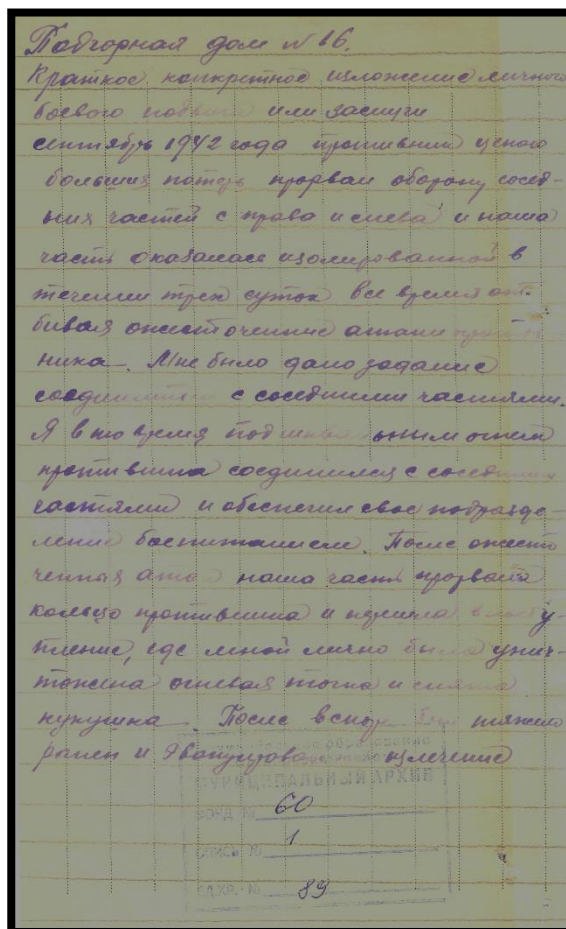 Подгорная дом № 16.
Краткое, конкретное изложение личного
боевого подвига или заслуги
сентябрь 1942 года противник ценою
больших потерь прорвал оборону сосед-
них частей с права и слева и наша
часть оказалась изолированной в
течении трех суток все время от-
бивая ожесточенные атаки против
ника. Мне было дано задание
соединиться с соседними частями.
Я в то время под шквальным огнем
противника соединился с соседними
частями и обеспечил свое подразде-
ление боепитанием. После ожесто
ченных атак наша часть прорвала
кольцо противника и перешла в насту-
пление, где мной лично была унич-
тожена огневая точка и снята
кукушка. После вскоре был тяжело
ранен и эвакуирован излечение
образование
МУНИЦИПАЛЬНЫЙ АРХИВ
ФОНД № 60
ОПИСЬ № 1
ЕД.ХР. № 89